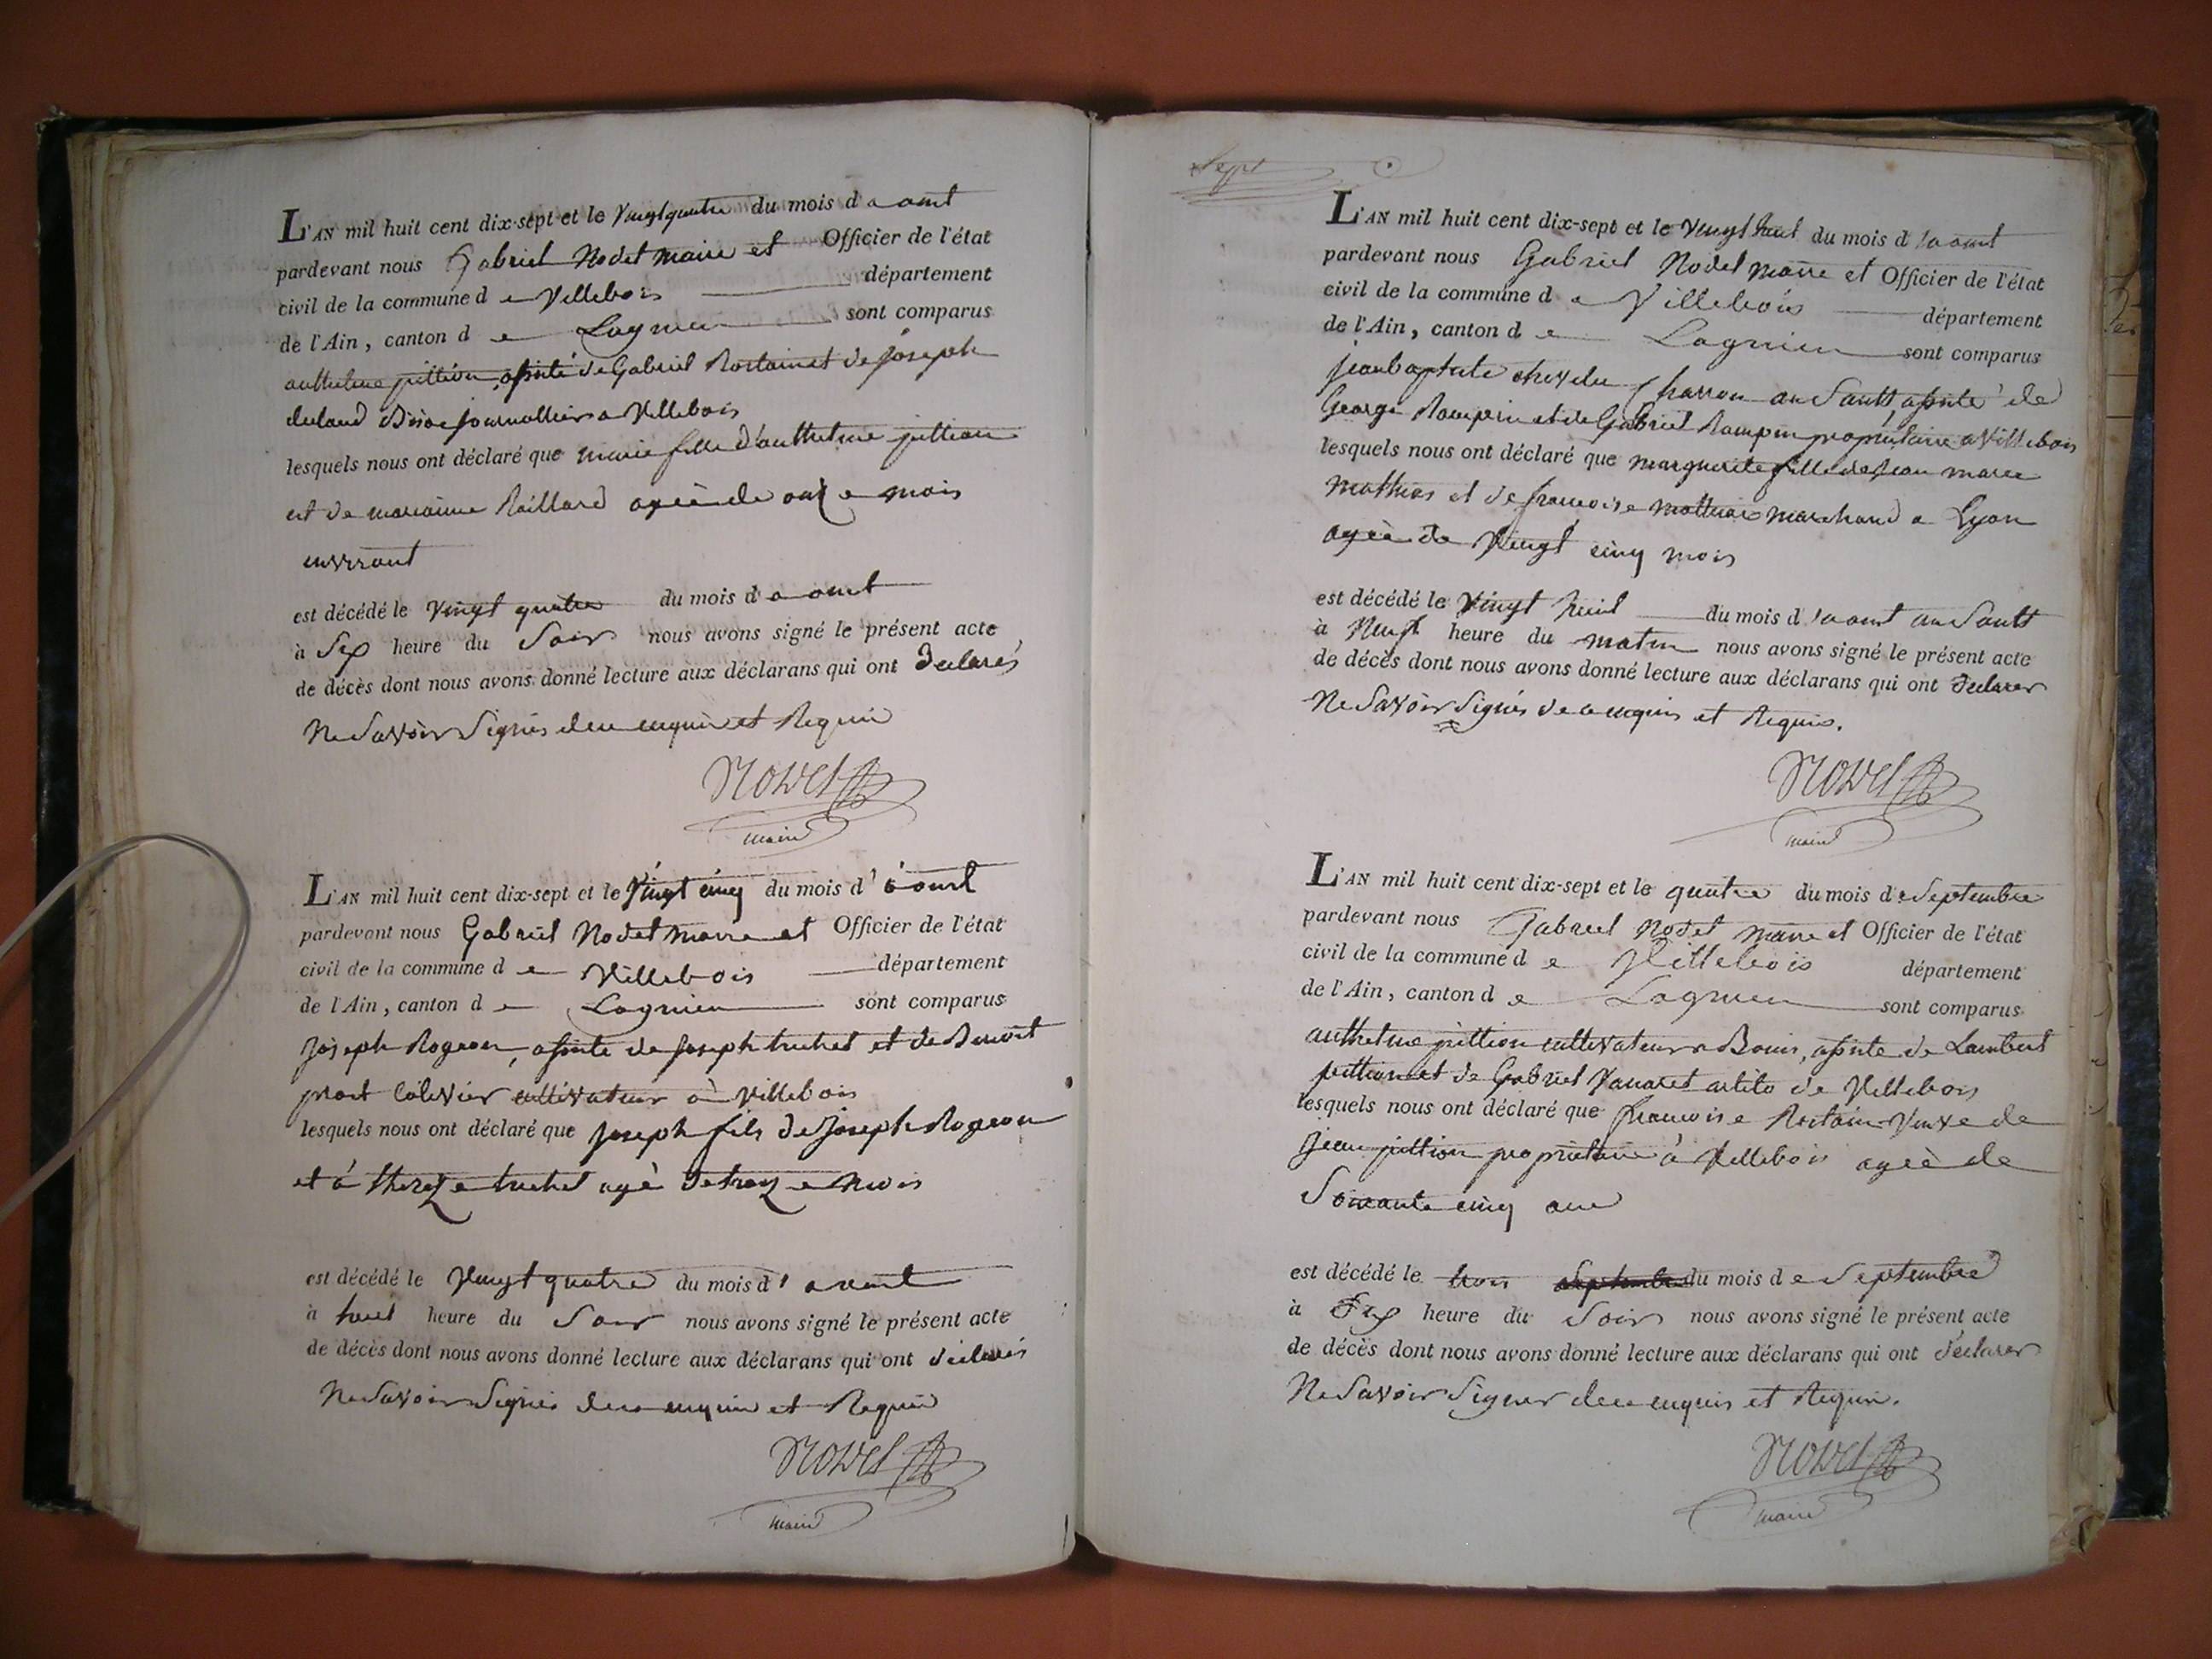 L'AN mil huit cent dix-sept et le vingt quatre du mois d aoust
pardevant nous Gabriel Nodet maire et Officier de l'état
civil de la commune d e Villebois département
de l'Ain, canton d e Lagnieu sont comparus
anthelme pittion, assisté de Gabriel Rostain et de joseph
journallier a Villebois
lesquels nous ont déclaré que marie fille d'anthelme pittion
et de marianne Raillard agèe de onze mois
environt
est décédé le vingt quatre du mois d aoust
à Six heure du Soir nous avons signé le présent acte
de décès dont nous avons donné lecture aux déclarans qui ont declarés
Ne Savoir Signés de ce enquis et Requis
NODET
maire
L'AN mil huit cent dix-sept et le vingt cinq du mois d' aoust
pardevant nous Gabriel Nodet maire et Officier de l'état
civil de la commune d e Villebois département
de l'Ain, canton d e Lagnieu sont comparus
Joseph Rogeon, assisté de joseph truchet et de Benoit
cultivateur à Villebois
lesquels nous ont déclaré que joseph fils de joseph Rogeon
et á thereze truchet agè de treize mois
est décédé le vingt quatre du mois d' aoust
à huit heure du Soir nous avons signé le présent acte
de décès dont nous avons donné lecture aux déclarans qui ont déclarés
Ne Savoir Signés de ce enquis et Requis
NODET
maire
Sept
L'AN mil huit cent dix-sept et le vingt huit du mois d'aoust
pardevant nous Gabriel Nodet maire et Officier de l'état
civil de la commune d e Villebois département
de l'Ain, canton d e Lagnieu sont comparus
jean baptiste chevelu charron au Sault, assisté de
George Rampin et de Gabriel Rampin propriétaire a Villebois
lesquels nous ont déclaré que marguerite fille de jean marie
mathias et de francoise mathias marchand a Lyon
agèe de vingt cinq mois
est décédé le vingt huit du mois d'aoust au Sault
à Neuf heure du matin nous avons signé le présent acte
de décès dont nous avons donné lecture aux déclarans qui ont declarer
Ne Savoir Signés de ce enquis et Requis.
NODET
maire
L'AN mil huit cent dix-sept et le quatre du mois de Septembre
pardevant nous Gabriel Nodet maire et Officier de l'état
civil de la commune d e Villebois département
de l'Ain, canton d e Lagnieu sont comparus
anthelme pittion cultivateur a Bouis, assisté de Lambert
pittion et de Gabriel Vanaret de Villebois
lesquels nous ont déclaré que francoise Rostain Veuve de
jean pittion propriétaire à Villebois agèe de
Soixante cinq ans
est décédé le trois du mois d e Septembre
à Six heure du Soir nous avons signé le présent acte
de décès dont nous avons donné lecture aux déclarans qui ont déclarer
Ne Savoir Signer de ce enquis et Requis.
NODET
maire